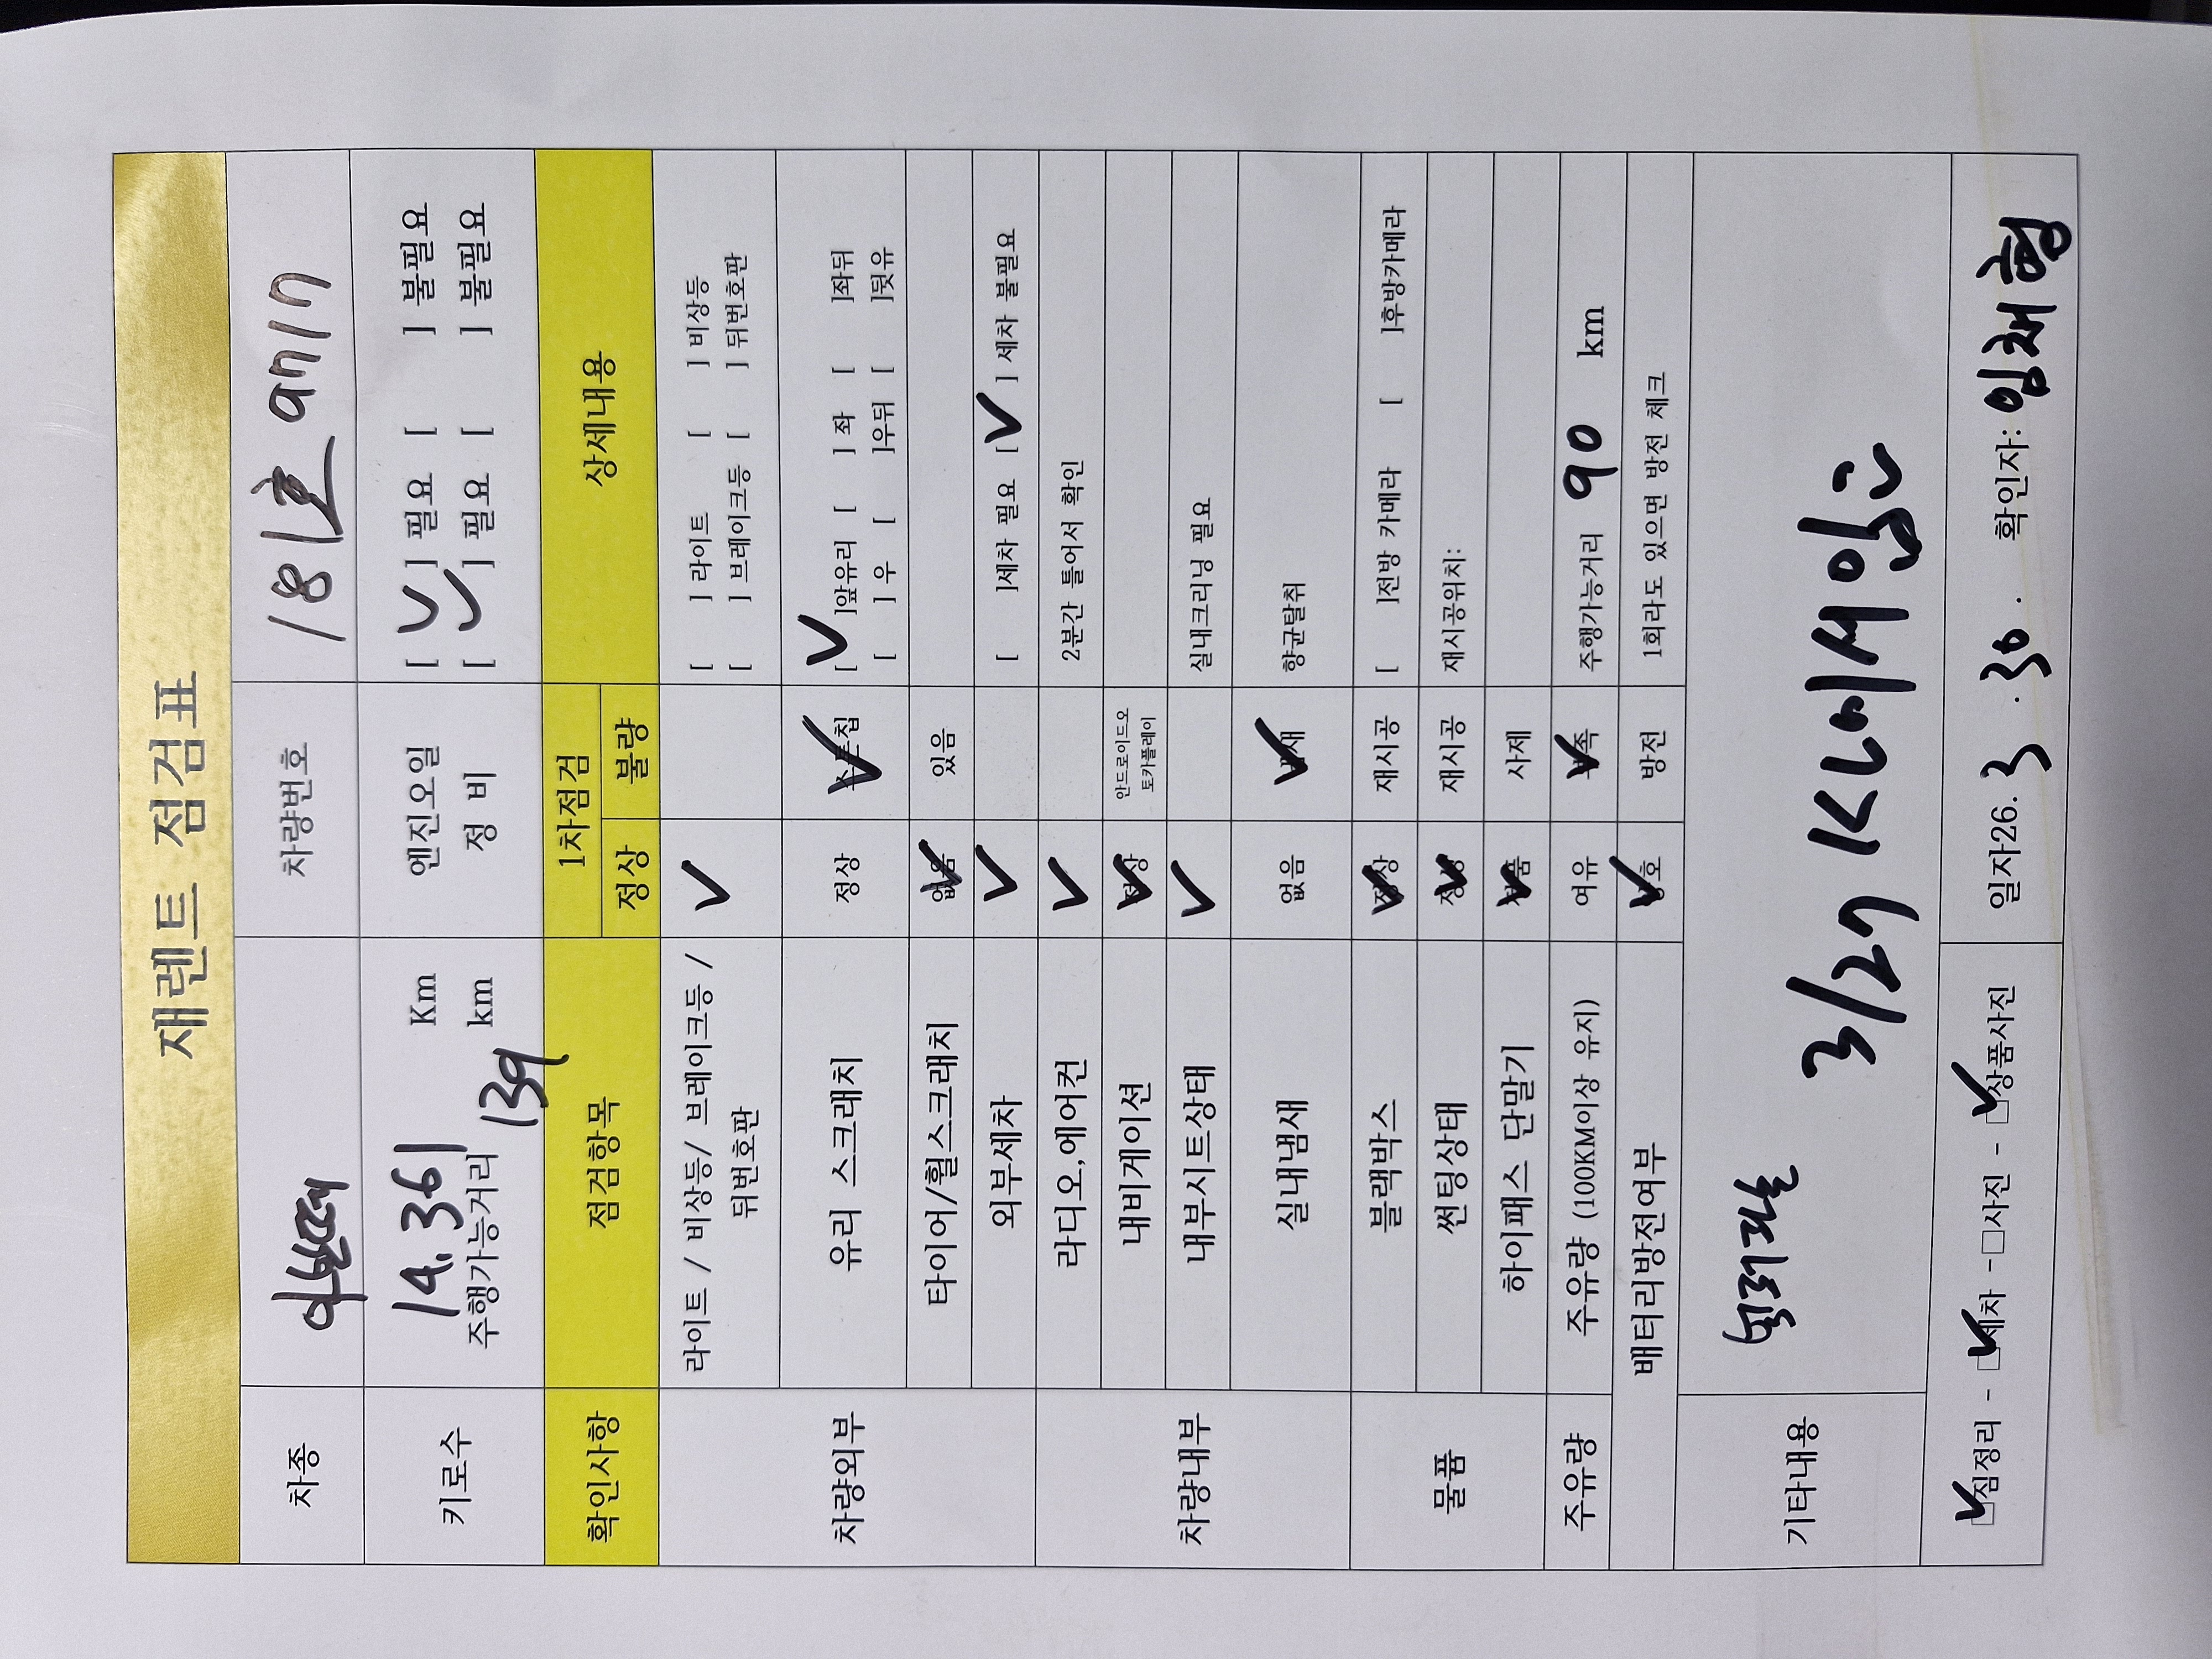 재렌트 점검표
차종 아반떼 차량번호 18호_9717
키로수 14,361 Km 엔진오일 [ ✓ ] 필요 [ ] 불필요
주행가능거리 139 km 정 비 [ ✓ ] 필요 [ ] 불필요
확인사항 점검항목 1차점검 상세내용
정상 불량
차량외부 라이트 / 비상등/ 브레이크등 / 뒤번호판 ✓ [ ] 라이트 [ ] 비상등
[ ] 브레이크등 [ ] 뒤번호판
유리 스크래치 정상 ✓ [ ✓ ]앞유리 [ ] 좌 [ ]좌뒤
[ ] 우 [ ]우뒤 [ ]뒷유
타이어/휠스크래치 없음 ✓ 있음
외부세차 ✓ [ ]세차 필요 [ ✓ ] 세차 불필요
차량내부 라디오,에어컨 ✓ 2분간 틀어서 확인
내비게이션 정상 ✓ 안드로이드오토카플레이
내부시트상태 ✓ 실내크리닝 필요
실내냄새 없음 ✓ 향균탈취
물품 블랙박스 정상 ✓ 재시공 [ ]전방 카메라 [ ]후방카메라
썬팅상태 정상 ✓ 재시공 재시공위치:
하이패스 단말기 ✓ 사제
주유량 주유량 (100KM이상 유지) 여유 ✓ 부족 주행가능거리 90 km
배터리방전여부 양호 ✓ 방전 1회라도 있으면 방전 체크
기타내용
3/27 K에서인수
☑짐정리 - ☑세차 - □사진 - ☑상품사진 일자26. 3 . 30 . 확인자: 임채형